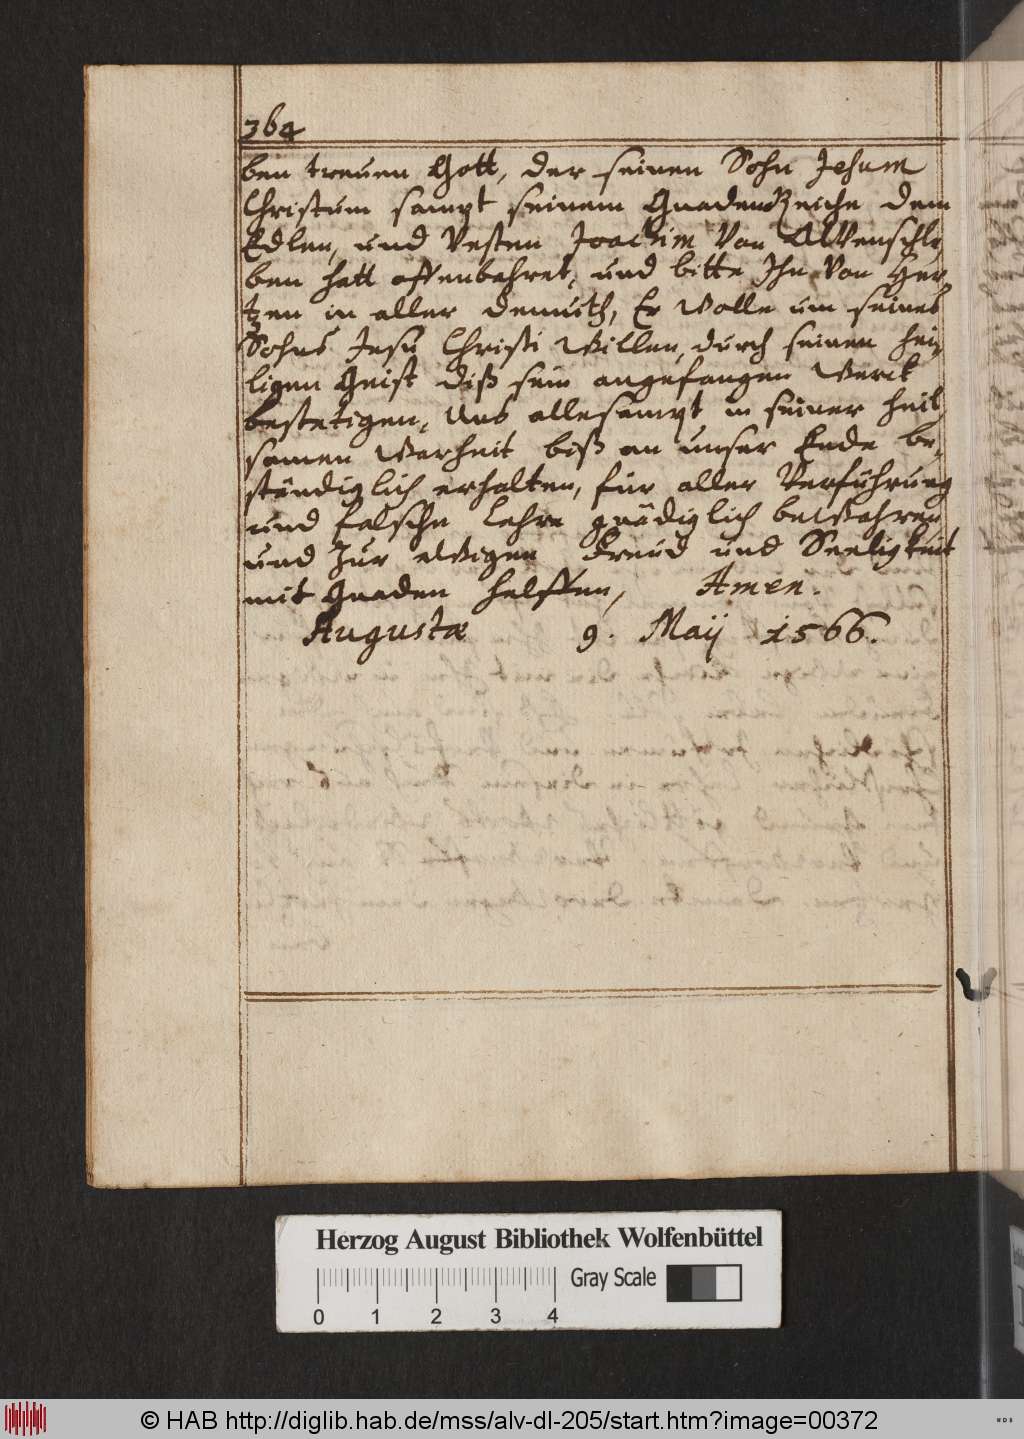 364
ben treuen Gott, der seinen Sohn Jesum
Christum sampt seinem GnadenReiche dem
Edlen, und Vesten Joachim Von Alvenschle,
ben hatt offenbahret, und bitte Ihn Von Her,
tzen in aller demuth, Er Wolle um seines
Sohns Jesu Christi Willen, durch seinen hei,
ligen Geist diß sein angefangen Werck
bestetigen, Uns allesampt in seiner heil,
samen Warheit biß an unser Ende be,
ständiglich erhalten, für aller Verführung
und falsche Lehre gnädiglich beWahren
und Zur eWigen Freud und Seeligkeit
mit Gnaden helffen, Amen.
Augustæ 9. Maij 1566.
Herzog August Bibliothek Wolfenbüttel
Gray Scale
0 1 2 3 4
© HAB http://diglib.hab.de/mss/alv-dl-205/start.htm?image=00372